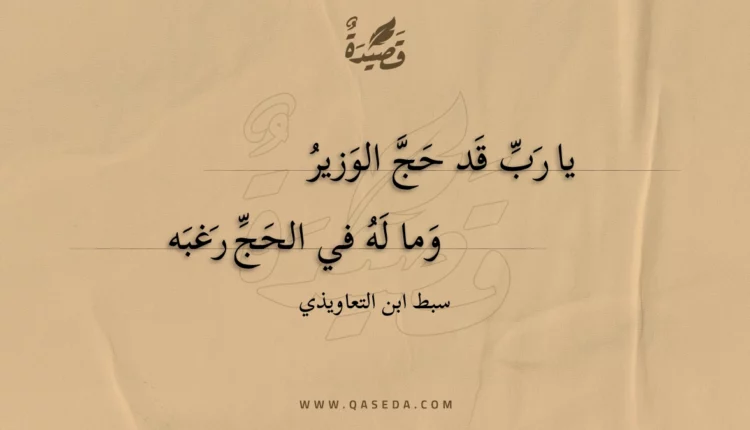 قَصِيْدَةٌ
يا رَبِّ قَد حَجَّ الوَزيرُ
وَما لَهُ في الحَجِّ رَغبَه
سبط ابن التعاويذي
WWW.QASEDA.COM